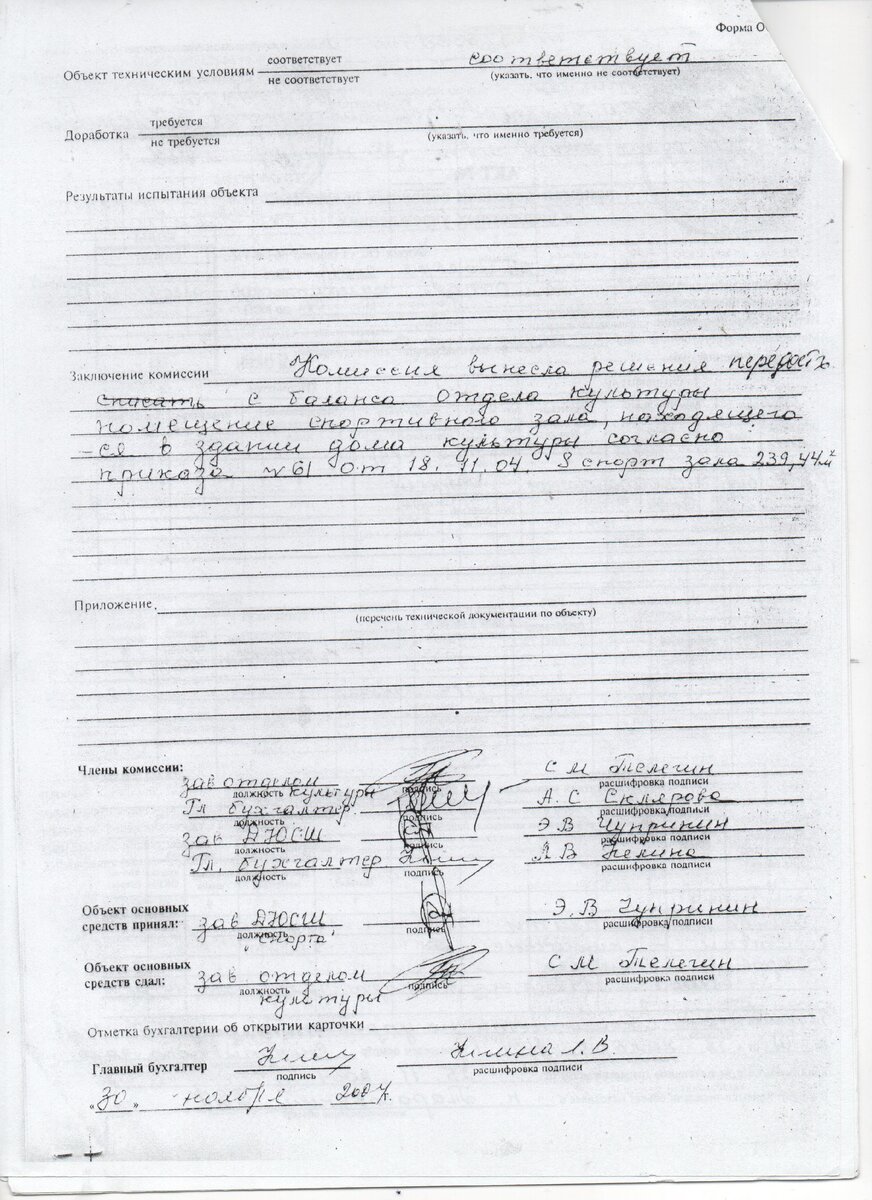 Форма О
соответствует
Объект техническим условиям соответствует
не соответствует (указать, что именно не соответствует)
требуется
Доработка
не требуется (указать, что именно требуется)
Результаты испытания объекта
Заключение комиссии Комиссия вынесла решения передать
списать с баланса отдела культуры
помещение спортивного зала, находящего
-ся в здании дома культуры согласно
приказа №61 от 18.11.04. S спорт зала 239,44 м²
Приложение
(перечень технической документации по объекту)
Члены комиссии:
зав отделом С М Телегин
должность культуры подпись расшифровка подписи
Гл бухгалтер А. С Склярова
должность подпись расшифровка подписи
зав ДЮСШ Э. В Чупринин
должность подпись расшифровка подписи
Гл. бухгалтер Л В
должность подпись расшифровка подписи
Объект основных
средств принял: зав ДЮСШ Э. В Чупринин
должность подпись расшифровка подписи
"Спорта"
Объект основных
средств сдал: зав отделом С М Телегин
должность подпись расшифровка подписи
культуры
Отметка бухгалтерии об открытии карточки
Главный бухгалтер Л. В.
подпись расшифровка подписи
"30" ноября